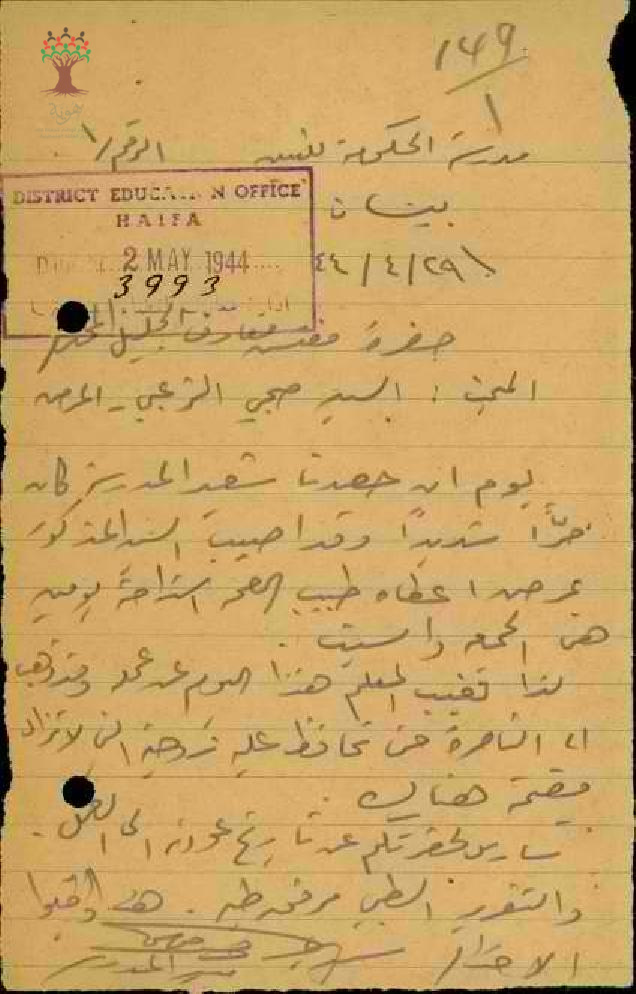 ١٤٩
١
مدرسة الحكومة للبنين الرقم/١
DISTRICT EDUCA... N OFFICE
HAIFA
2 MAY 1944
3993
بيسان
٤٤/٤/٢٩
حضرة مفتش معارف الجليل المحترم
المبحث : السيد صبحي الزعبي - المرض
يوم ان حصدنا شعير المدرسة كان
حرًّا شديدًا وقد اصيب السيد المذكور
بمرض اعطاه طبيب الصحة استراحة يومين
هي الجمعة والسبت .
لذا تغيب المعلم هذا اليوم عن عمله وقد ذهب
الى الناصرة حتى تحافظ عليه زوجته التي لا تزال
مقيمة هناك .
سارسل لحضرتكم عن تاريخ عودته الى العمل .
والتقرير الطبي مرفق طيه . هذا واقبلوا
الاحترام
مدير المدرسة